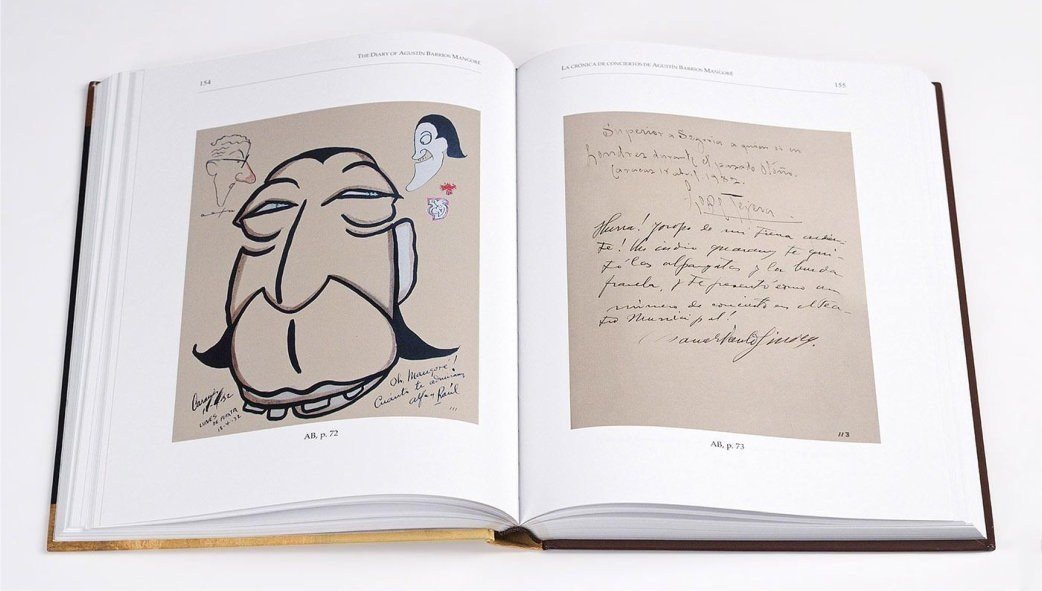 154
THE DIARY OF AGUSTÍN BARRIOS MANGORÉ
LUNES
18-4-32
Oh, Mangoré!
Cuánto te admiran
alfa y Raúl
111
AB, p. 72
LA CRÓNICA DE CONCIERTOS DE AGUSTÍN BARRIOS MANGORÉ
155
Superior a Segovia a quien oí en
Londres durante el pasado Otoño.
Caracas 18 abril 1932.
Hurra! Joropo de mi tierra
te! Un indio guarany te qui-
tó las alpargatas y la
franela, y te presentó como un
número de concierto en el Tea-
tro Municipal!
113
AB, p. 73